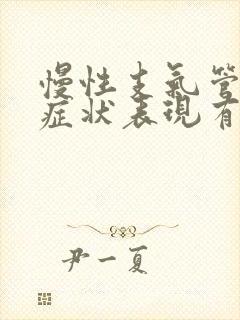 慢性支氣管
症状表現有
尹一夏